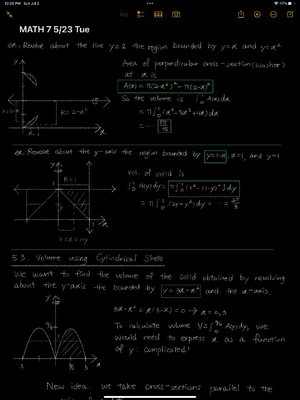 10:20 PM Sun Jul 2
47%
MATH 7 5/23 Tue
ex. Revolve about the line y=2 the region bounded by y=x and y=x²
Area of perpendicular cross-section (washer)
at x is
A(x) = π(2-x²)² - π(2-x)²
So the volume is ∫₀¹ A(x)dx
R=2-x²
= π∫₀¹ (x⁴-5x²+4x)dx
= ... = 8π/15
ex. Revolve about the y-axis the region bounded by y=1-x, x=1, and y=1
R=1
Vol. of solid is
∫₀¹ A(y)dy = π∫₀¹ (1²-(1-y)²)dy
= π∫₀¹ (2y-y²)dy = ... = 2π/3
r=x=1-y
5.3. Volume using Cylindrical Shells
We want to find the volume of the solid obtained by revolving
about the y-axis the bounded by y=3x-x² and the x-axis.
3x-x² = x(3-x) = 0 → x=0,3
To calculate volume V=∫₀^(9/4) A(y)dy, we
would need to express x as a function
of y: complicated!
New idea: we take cross-sections parallel to the